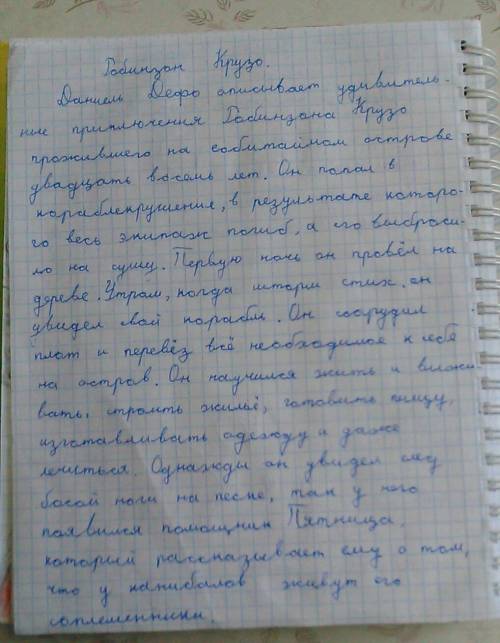 Робинзон Крузо.
Даниель Дефо описывает удивитель-
ные приключения Робинзона Крузо
прожившего на обитаемом острове
двадцать восемь лет. Он попал в
кораблекрушения, в результате которо-
го весь экипаж погиб, а его выброси-
ло на сушу. Первую ночь он провёл на
дереве. Утром, когда шторм стих, он
увидел свой корабль. Он соорудил
плот и перевёз всё необходимое к себе
на остров. Он научился жить и выжи
вать, строить жильё, готовить пищу,
изготавливать одежду и даже
лечиться. Однажды он увидел след
босой ноги на песке, так у него
появился помощник Пятница,
который рассказывает ему о том,
что у канибалов живут его
соплеменники.